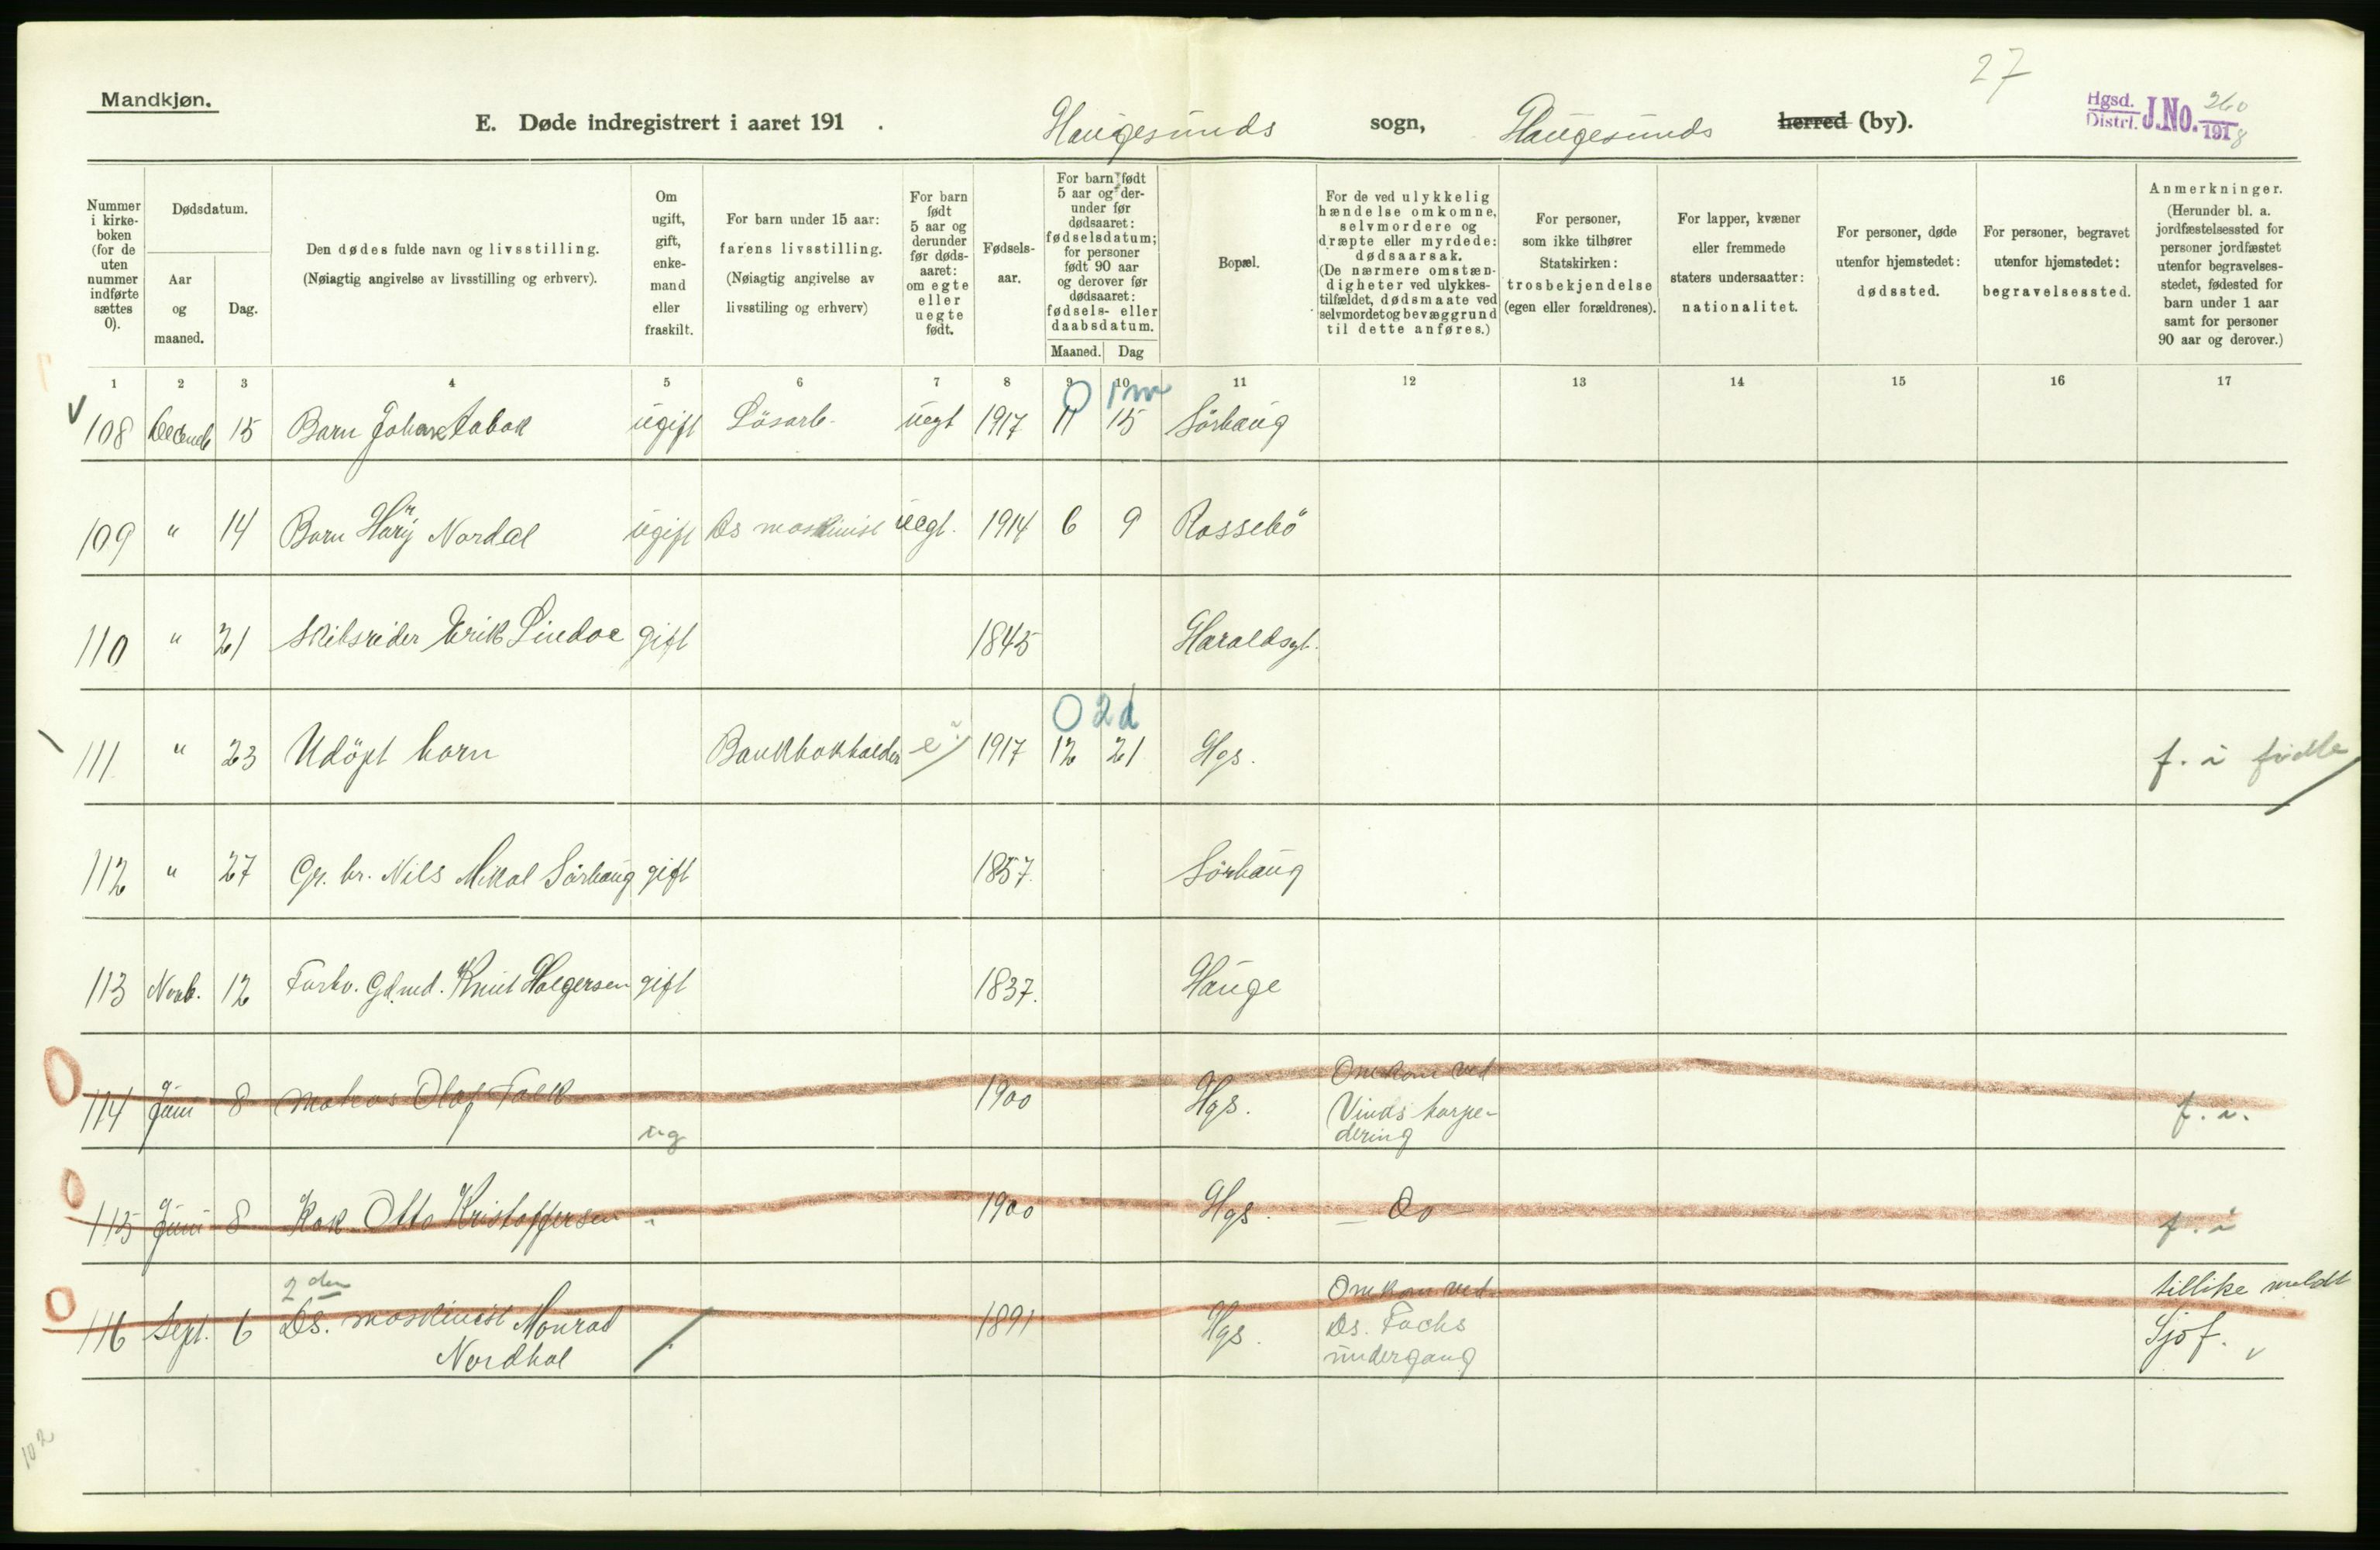 27
Mandkjøn.
E. Døde indregistrert i aaret 191 .
Haugesunds sogn, Haugesunds herred (by).
Hgsd. Distr. J.No. 260 1918
Nummer i kirke-boken (for de uten nummer indførte sættes 0).
Dødsdatum.
Aar og maaned.
Dag.
Den dødes fulde navn og livsstilling.
(Nøiagtig angivelse av livsstilling og erhverv).
Om ugift, gift, enke-mand eller fraskilt.
For barn under 15 aar: farens livsstilling.
(Nøiagtig angivelse av livsstiling og erhverv)
For barn født 5 aar og derunder før døds-aaret: om egte eller uegte født.
Fødsels-aar.
For barn født 5 aar og der-under før dødsaaret: fødselsdatum; for personer født 90 aar og derover før dødsaaret: fødsels- eller daabsdatum.
Maaned. Dag
Bopæl.
For de ved ulykkelig hændelse omkomne, selvmordere og dræpte eller myrdede: dødsaarsak.
(De nærmere omstæn-digheter ved ulykkes-tilfældet, dødsmaate ved selvmordet og bevæggrund til dette anføres.)
For personer, som ikke tilhører Statskirken: trosbekjendelse (egen eller forældrenes).
For lapper, kvæner eller fremmede staters undersaatter: nationalitet.
For personer, døde utenfor hjemstedet: dødssted.
For personer, begravet utenfor hjemstedet: begravelsessted.
Anmerkninger.
(Herunder bl. a. jordfæstelsessted for personer jordfæstet utenfor begravelses-stedet, fødested for barn under 1 aar samt for personer 90 aar og derover.)
1 2 3 4 5 6 7 8 9 10 11 12 13 14 15 16 17
0 1 m
108 Decemb 15 Barn Johan ugift Lösarb. uegt 1917 11 15 Sörhaug
109 " 14 Barn Harry Nordal ugift Ds maskinist uegt. 1914 6 9 Rossebö
110 " 21 Skibsreder Erik Lindoe gift 1845 Haraldsgt.
0 2 d
111 " 23 Udöpt barn Bankbokholder e 1917 12 21 Hgs. f. i
112 " 27 Gr. br. Nils Mikal Sörhaug gift 1857. Sörhaug
113 Novb. 12 Forhv. Gd.md. Knut Holgersen gift 1837. Hauge
114 Juni 8 Matros Olaf Falk ug 1900 Hgs. Omkom ved
Vinds torpe-
dering f. i.
115 Juni 8 Kok Otto Kristoffersen " 1900 Hgs. – Do – f. i
116 Sept. 6 2den
Ds. maskinist Monrad
Nordhal 1891 Hgs. Omkom ved
Ds. Fochs
undergang tillike meldt
Sjöf.
102